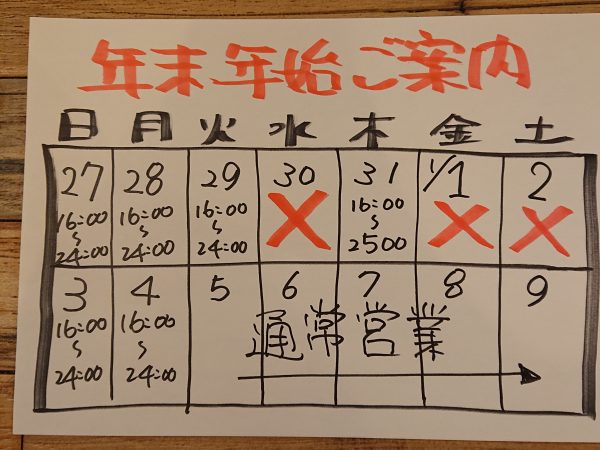 年末年始ご案内
日 月 火 水 木 金 土
27 28 29 30 31 1/1 2
16:00 16:00 16:00 X 16:00 X X
~ ~ ~ ~
24:00 24:00 24:00 2500
3 4 5 6 7 8 9
16:00 16:00 通常営業
~ ~
24:00 24:00